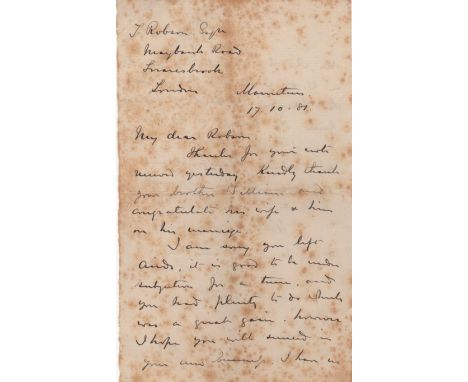 T Robson Esqre
Maybank Road
Snaresbrook
London Mauritius
17.10.81.
My dear Robson,
Thanks for your note
received yesterday Kindly thank
your brother William and
congratulate his wife & him
on his marriage.
I am sorry you left
it is good to be under
subjection for a time, and
you had plenty to do which
was a great gain. however
I hope you will succeed in
your own business I have no